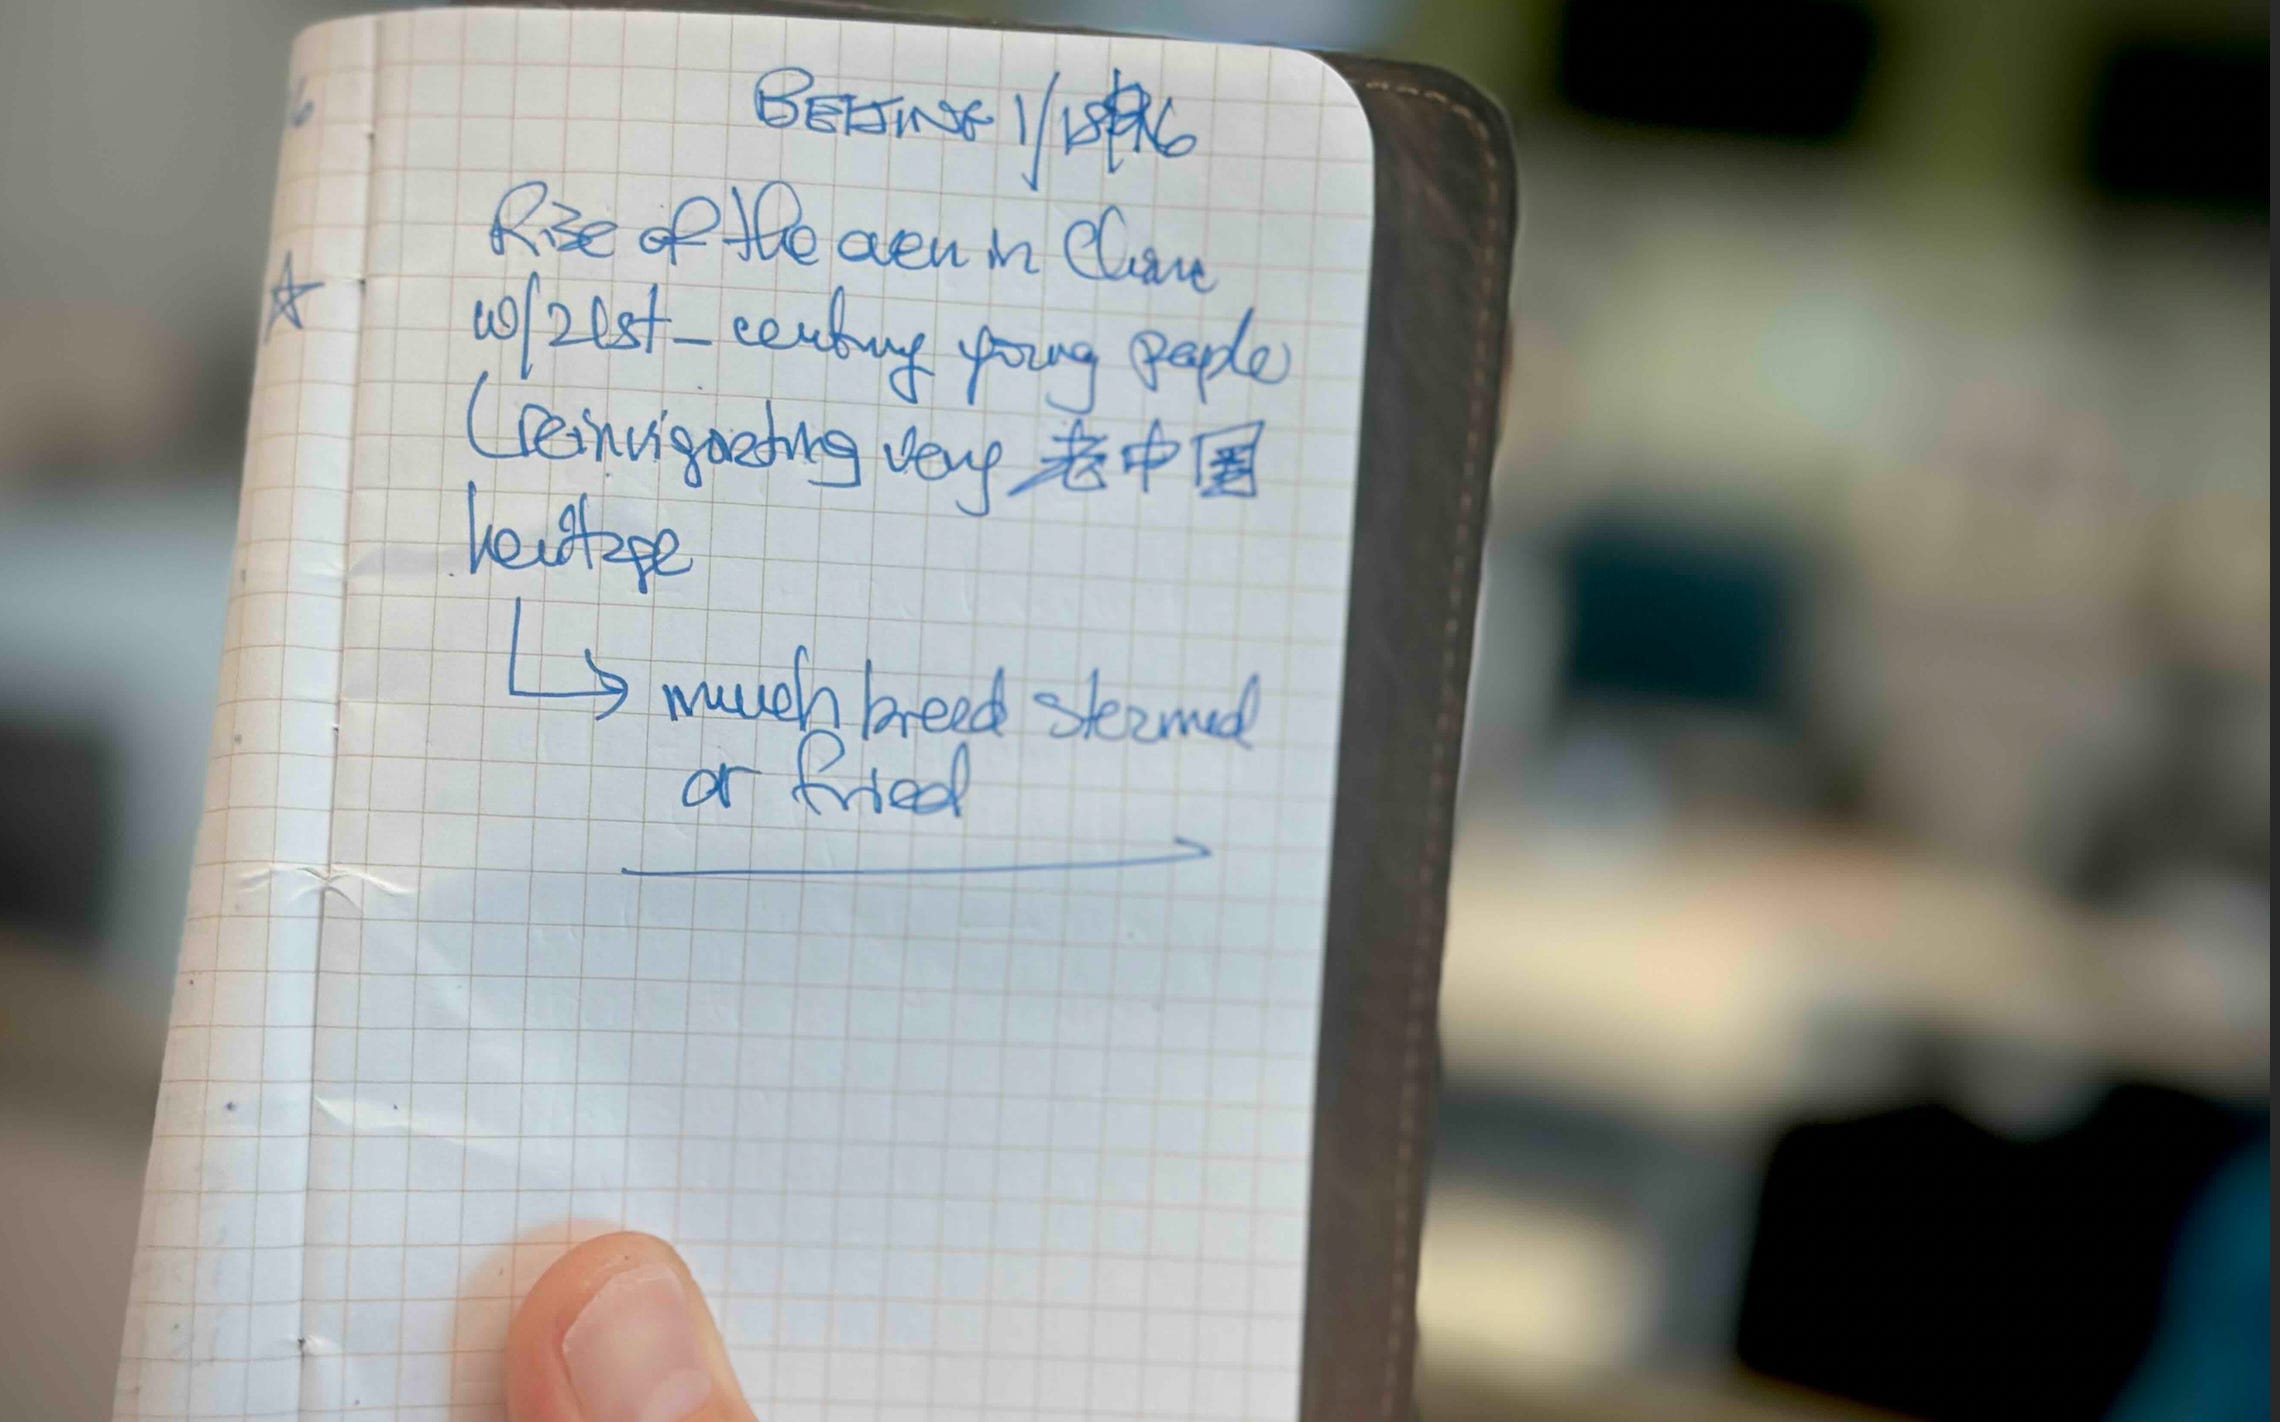 BEIJING 1/15/96
☆ Rise of the oven in China
w/21st-century young people
(reinvigorating very 老中国
heritage
↳ much bread steamed
or fried
→